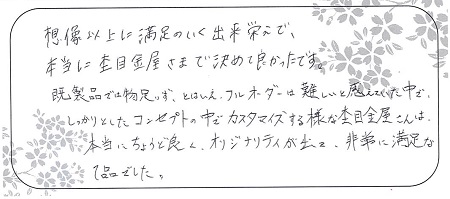 想像以上に満足のいく出来栄えで、
本当に杢目金屋さまで決めて良かったです。
既製品では物足りず、とはいえ、フルオーダーは難しいと思えていた中で、
しっかりとしたコンセプトの中でカスタマイズする様な杢目金屋さんは、
本当にちょうど良く、オリジナリティが出て、非常に満足な
1品でした。